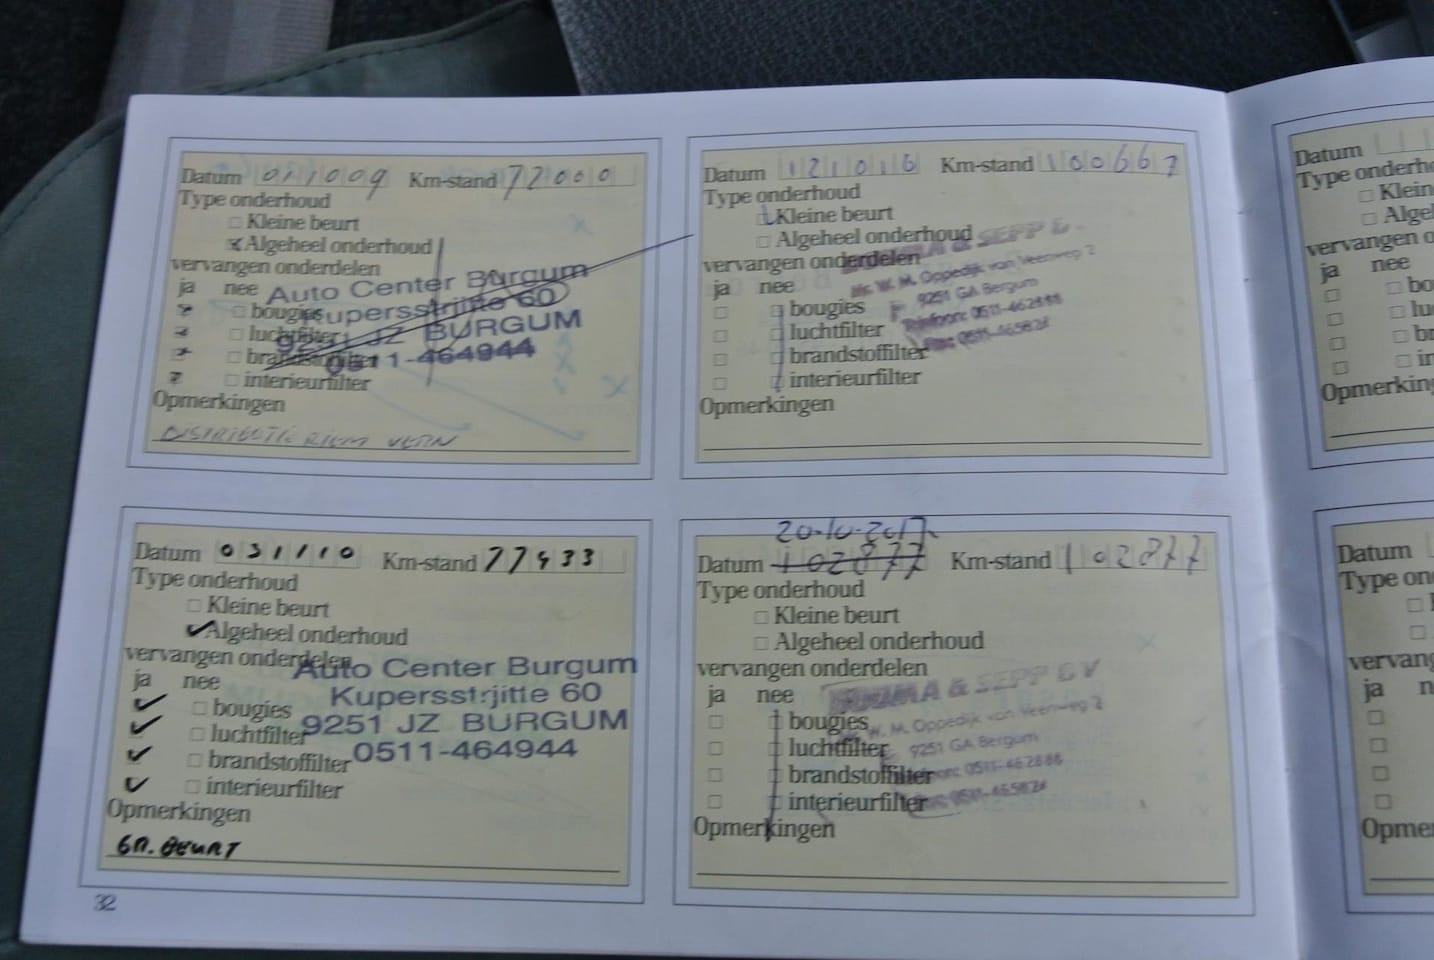 Datum 011009 Km-stand 72000
Type onderhoud
Kleine beurt
Algeheel onderhoud
vervangen onderdelen
ja nee
bougies
luchtfilter
brandstoffilter
interieurfilter
Auto Center Burgum
Kupersstrjitte 60
9251 JZ BURGUM
0511-464944
Opmerkingen
DISTRIBUTIE RIEM VERN
Datum 121016 Km-stand 100667
Type onderhoud
Kleine beurt
Algeheel onderhoud
vervangen onderdelen
ja nee
bougies
luchtfilter
brandstoffilter
interieurfilter
& SEPP B
W. M. Oppedijk van Veenweg 2
9251 GA Bergum
Telefoon: 0511-462888
Fax: 0511-465824
Opmerkingen
Datum 031110 Km-stand 77433
Type onderhoud
Kleine beurt
Algeheel onderhoud
vervangen onderdelen
ja nee
bougies
luchtfilter
brandstoffilter
interieurfilter
Auto Center Burgum
Kupersstrjitte 60
9251 JZ BURGUM
0511-464944
Opmerkingen
GR. BEURT
20-10-2017
Datum 102877 Km-stand 102877
Type onderhoud
Kleine beurt
Algeheel onderhoud
vervangen onderdelen
ja nee
bougies
luchtfilter
brandstoffilter
interieurfilter
& SEPP B V
W. M. Oppedijk van Veenweg 2
9251 GA Bergum
0511-462888
0511-465824
Opmerkingen
32
Datum
Type onderho
Klein
Alge
vervangen o
ja nee
bo
lu
br
in
Opmerking
Datum
Type on
vervang
ja n
Opme